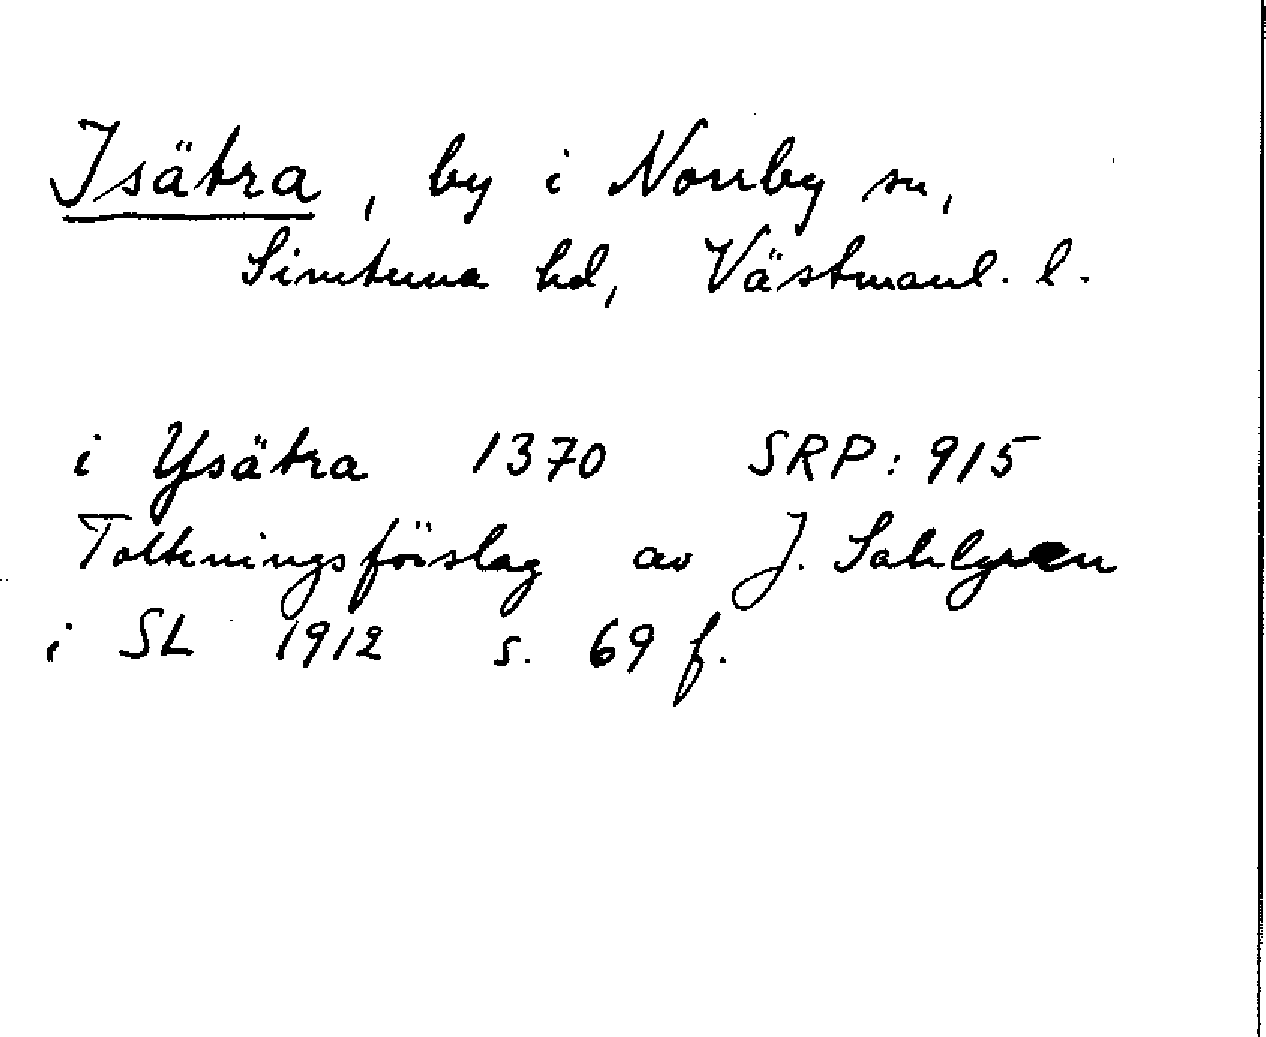 Isätra, by i Norrby sn,
Simtuna hd, Västmanl. l.
i Ysätra 1370 SRP: 915
Tolkningsförslag av J. Sahlgren
i SL 1912 s. 69 f.